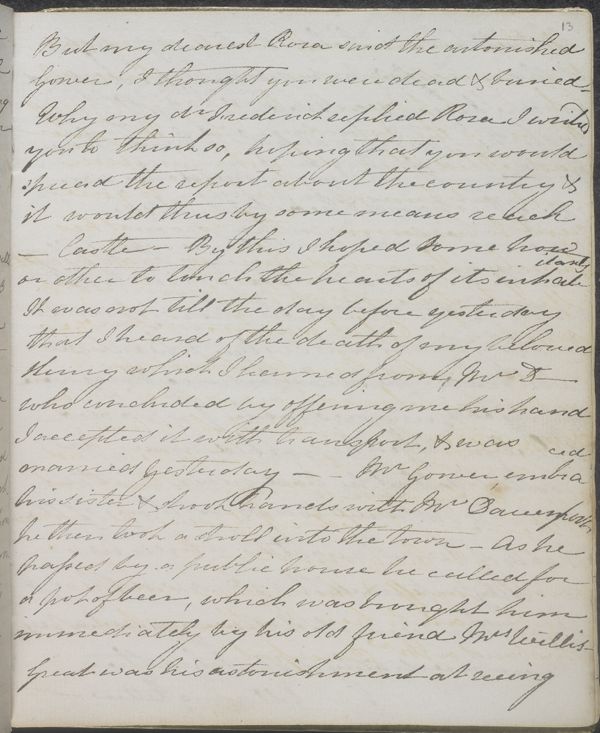 13
But my dearest Rosa said the astonished
Gower, I thought you were dead & buried –
Why my dr Frederick replied Rosa I wrote
you to think so, hoping that you would
spread the report about the country &
it would thus by some means reach
— Castle – By this I hoped some how
or other to touch the hearts of its inhabitants
It was not till the day before yesterday
that I heard of the death of my beloved
Henry which I learned from Mr D—
who concluded by offering me his hand
I accepted it with transport, & was
married yesterday — — Mr Gower embraced
his sister & shook hands with Mr Davenport
he then took a stroll into the town – As he
passed by a public house he called for
a pot of beer, which was brought him
immediately by his old friend Mrs Willis –
Great was his astonishment at seeing